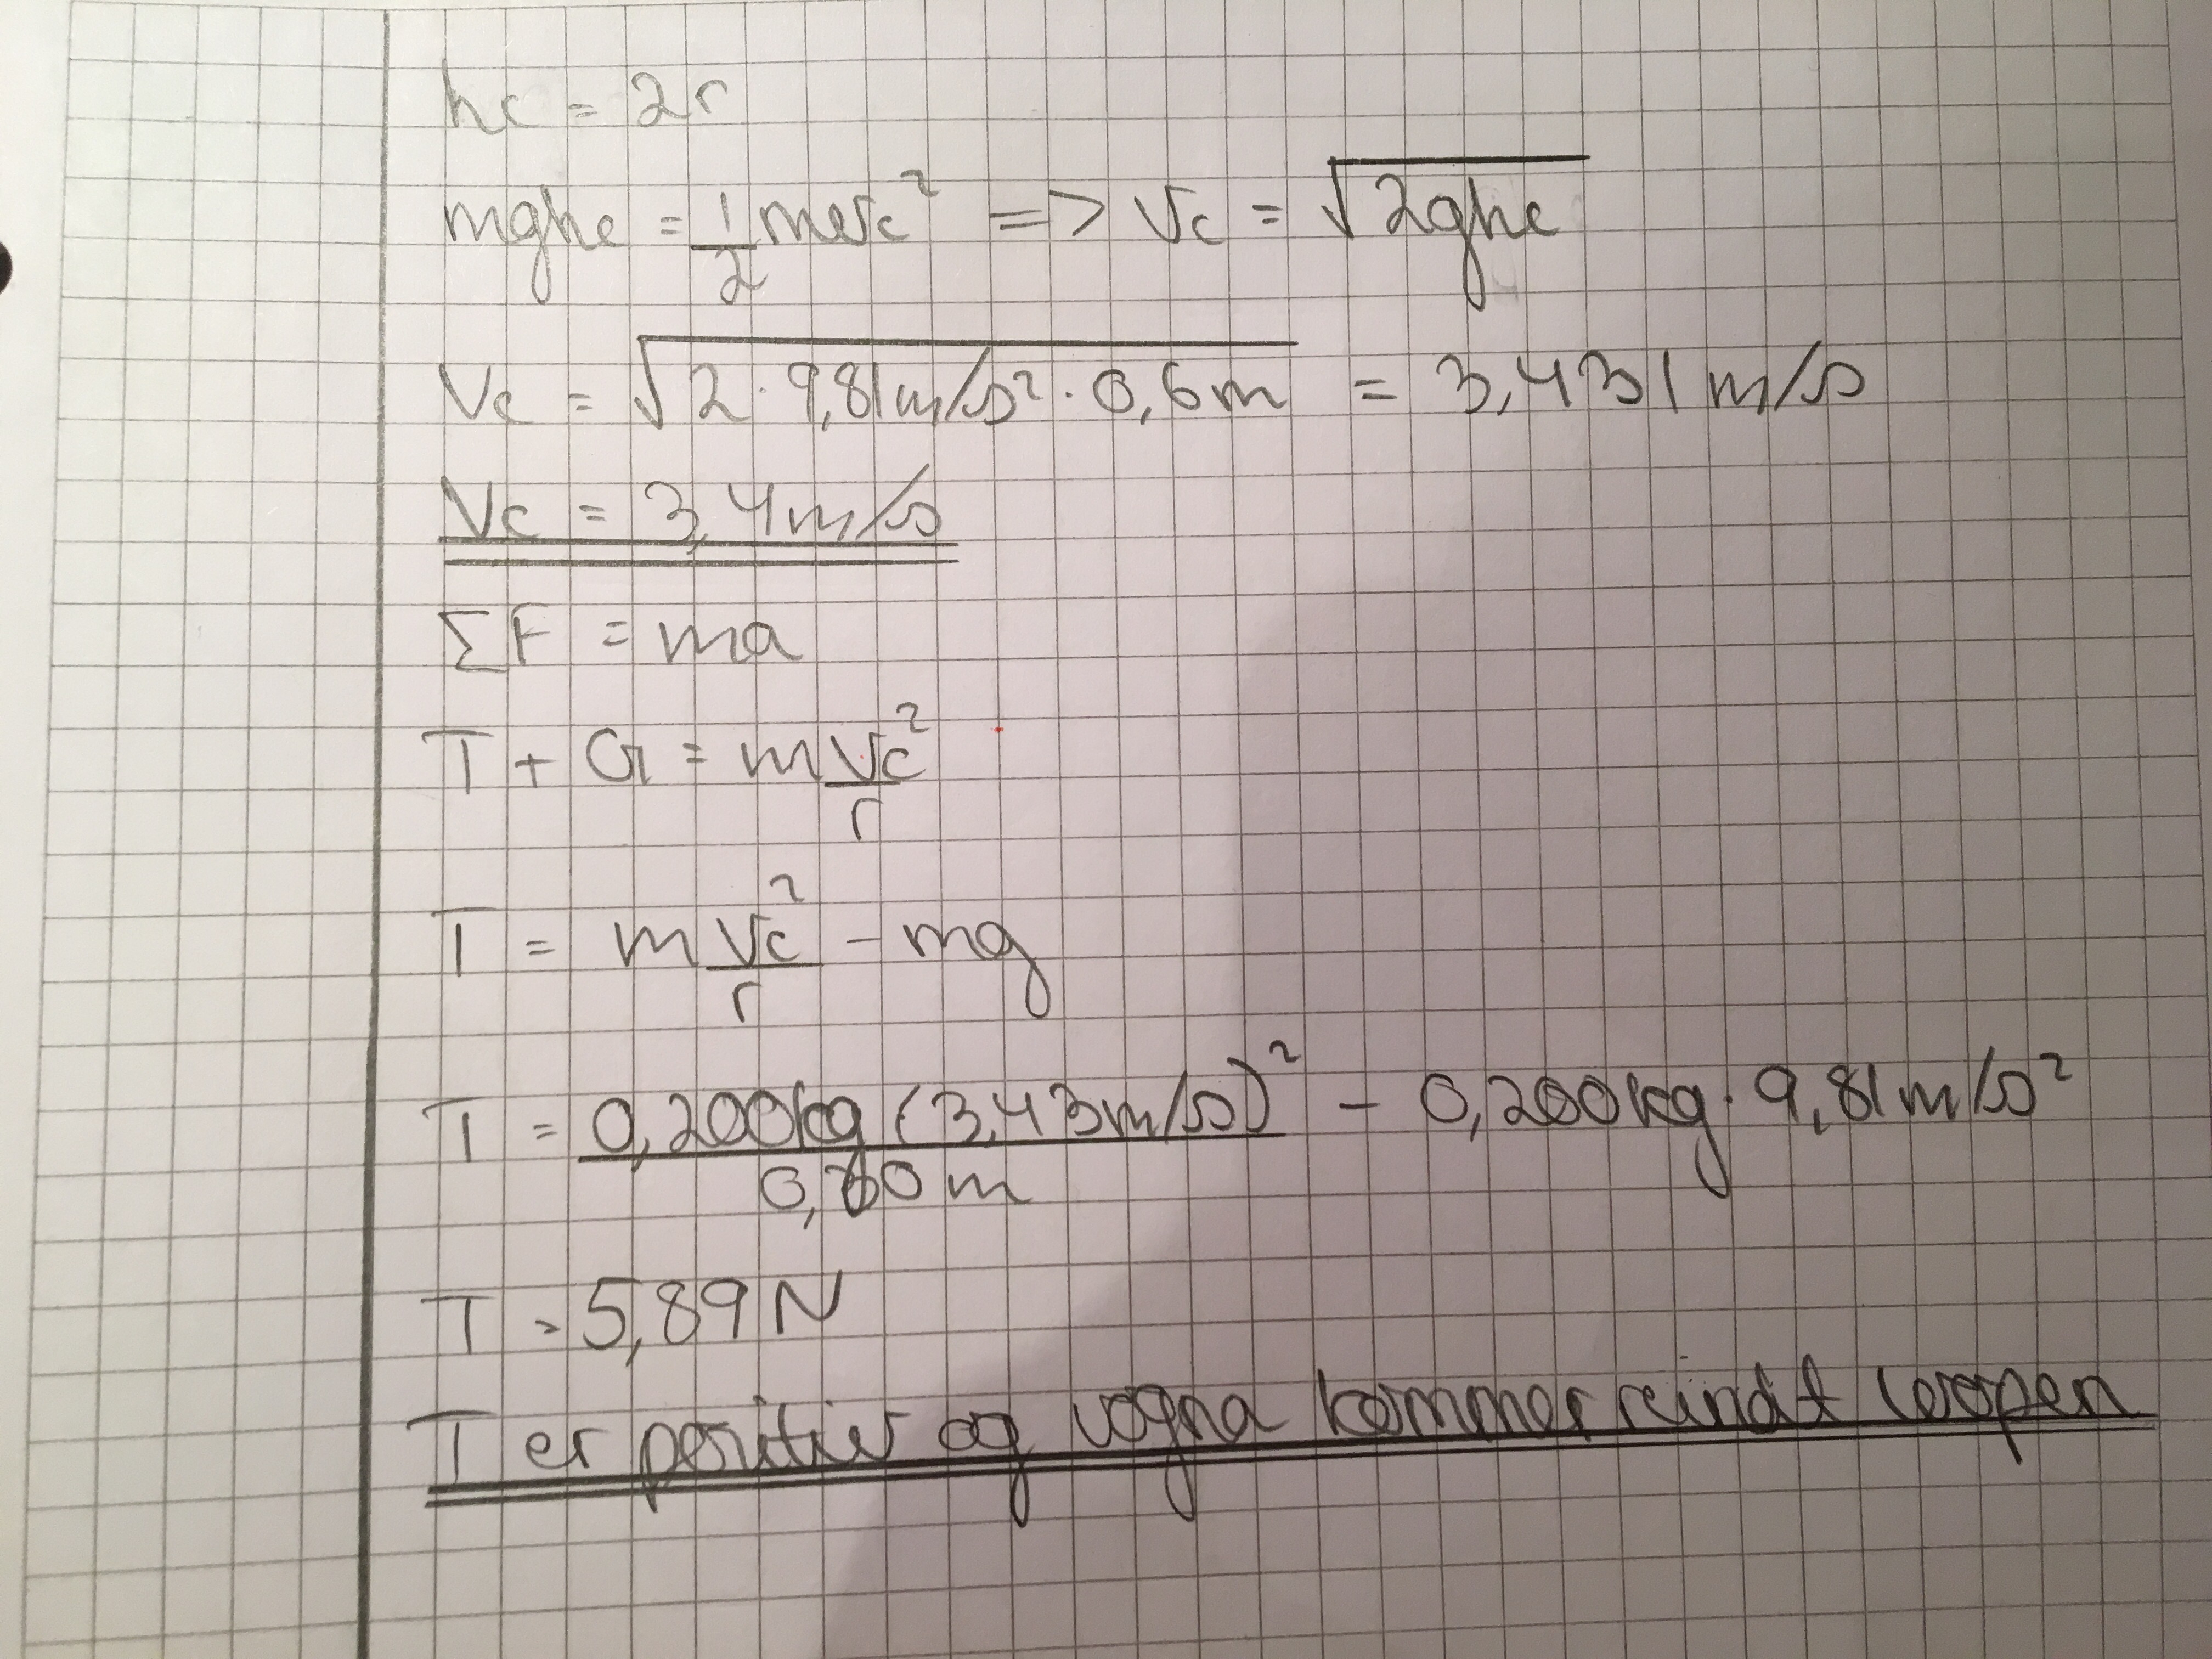 hc = 2r
mghc = 1/2 mvc² => Vc = √2ghc
Vc = √2 · 9,81m/s² · 0,6m = 3,431 m/s
Vc = 3,4m/s
ΣF = ma
T + G = m Vc²/r
T = m Vc²/r - mg
T = 0,200kg (3,43m/s)²/0,30m - 0,200kg · 9,81m/s²
T = 5,89N
T er positiv og vogna kommer rundt loopen